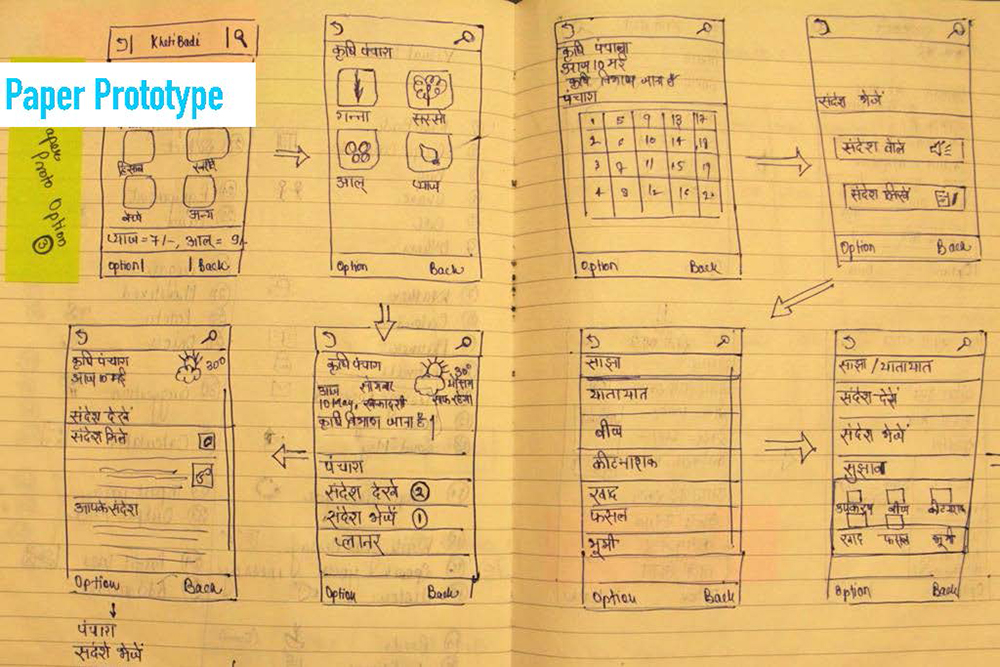 Paper Prototype
Paper Proto Option
③
KhetiBadi
हिसाब
अन्य
प्याज = 7/-, आलू = 9/-
Option
Back
कृषि पंचाग
गन्ना
सरसो
आलू
प्याज
Option
Back
कृषि पंचाग
आज 10 मई
कृषि विभाग जाना है
पंचाग
1 5 9 13 17
2 6 10 14 18
3 7 11 15 19
4 8 12 16 20
Option
Back
संदेश भेजें
संदेश बोले
संदेश लिखें
Option
Back
कृषि पंचाग
आज 10 मई
30°
संदेश देखे
संदेश मिले
आपके संदेश
Option
Back
पंचाग
संदेश भेजें
कृषि पंचाग
30°
आज सोमवार
10 May, एकादशी
मौसम
साफ रहेगा
कृषि विभाग जाना है।
पंचाग
संदेश देखे ②
संदेश भेजें ①
प्लानर
Option
Back
साझा
यातायात
बीज
कीटनाशक
खाद
फसल
भूमी
Option
Back
साझा / यातायात
संदेश देखें
संदेश भेजें
सुझाव
उपकरण बीज कीटनाशक
खाद फसल भूमी
Option
Back